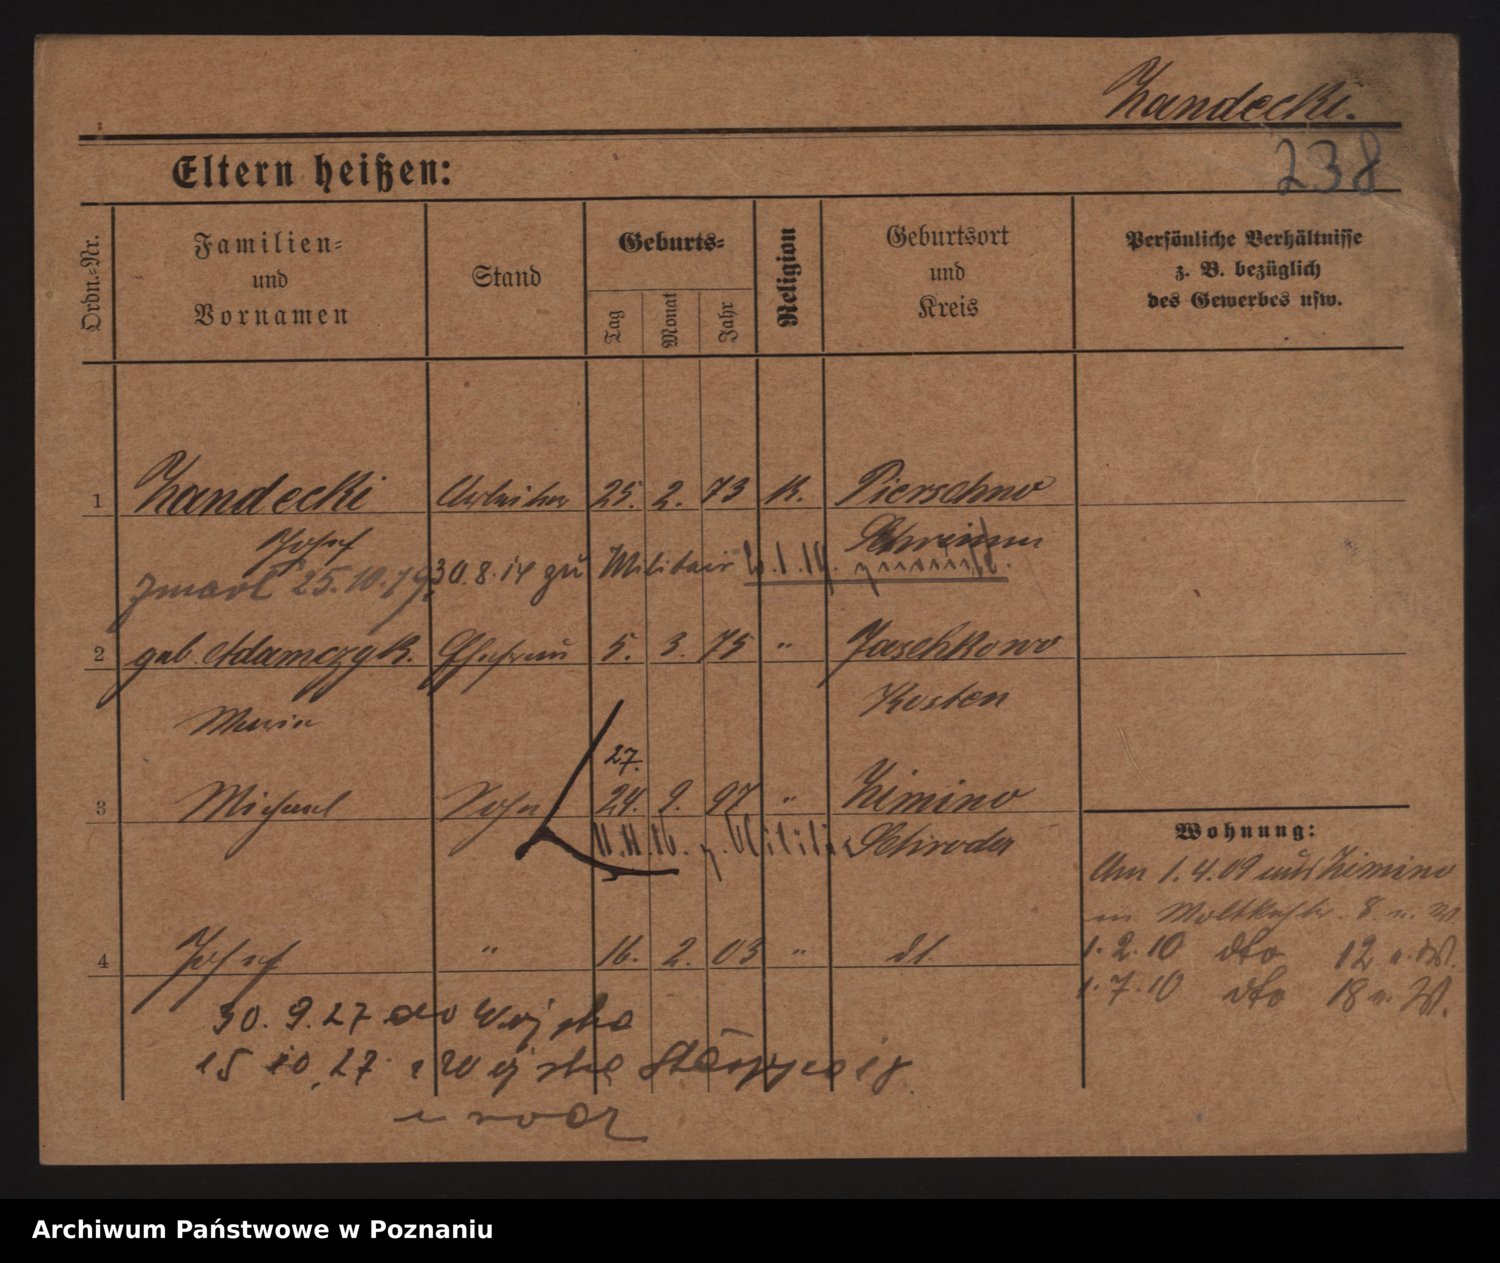 Zandecki.
238
Eltern heißen:
Ordn.=Nr.
Familien= und Vornamen
Stand
Geburts=
Tag
Monat
Jahr
Religion
Geburtsort und Kreis
Persönliche Verhältnisse
z. B. bezüglich
des Gewerbes usw.
1 Zandecki Arbeiter 25. 2. 73 K. Pierschno
Josef Schrimm
zmarł 25.10.19. 30.8.14 zu Militair
2 geb. Adamczyk. Ehefrau 5. 3. 75 " Jaschkowo
Maria Kosten
27.
3 Michael Sohn 24. 9. 97 " Zimino
11.11.16. z. Militär Schroda
4 Josef " 16. 2. 03 " dt.
30.9.27 do wojska
15 10.27 z wojska
Wohnung:
Am 1.4.09 aus Zimino
in Moltkestr. 8 n. W.
1.2.10 dto 12 n. W.
1.7.10 dto 18 n. W.
Archiwum Państwowe w Poznaniu